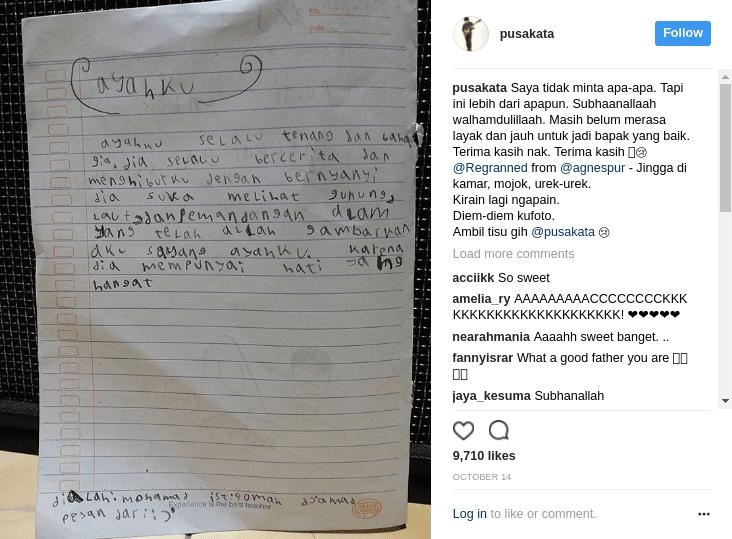 No.
Date:
ayahku
ayahku selalu tenang dan baha
gia. dia selalu bercerita dan
menghiburku dengan bernyanyi
dia suka melihat gunung,
Laut, dan pemandangan aLam
yang telah aLLah gambarkan
aku sayang ayahku. karena
dia mempunyai hati yang
hangat
diaLah: mohamad istiqomah djamad
Experience is the best teacher
pesan dari: j
pusakata
Follow
pusakata Saya tidak minta apa-apa. Tapi
ini lebih dari apapun. Subhaanallaah
walhamdulillaah. Masih belum merasa
layak dan jauh untuk jadi bapak yang baik.
Terima kasih nak. Terima kasih 😢
@Regranned from @agnespur - Jingga di
kamar, mojok, urek-urek.
Kirain lagi ngapain.
Diem-diem kufoto.
Ambil tisu gih @pusakata 😢
Load more comments
acciikk So sweet
amelia_ry AAAAAAAAACCCCCCCCKKK
KKKKKKKKKKKKKKKKKKKK! ❤❤❤❤❤
nearahmania Aaaahh sweet banget. ..
fannyisrar What a good father you are
jaya_kesuma Subhanallah
9,710 likes
OCTOBER 14
Log in to like or comment.